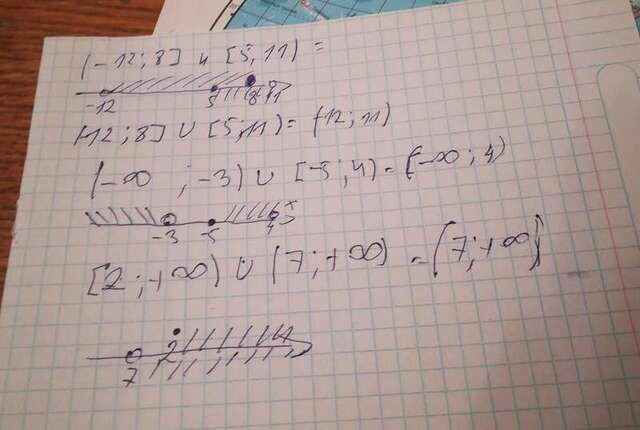 (-12; 8] и [5, 11) =
-12 5 8 11
(-12; 8] ∪ [5; 11) = (-12; 11)
(-∞ ; -3) ∪ [-5; 4) = (-∞; 4)
-3 -5 4
[2; +∞) ∪ (7; +∞) = (7; +∞)
7 2